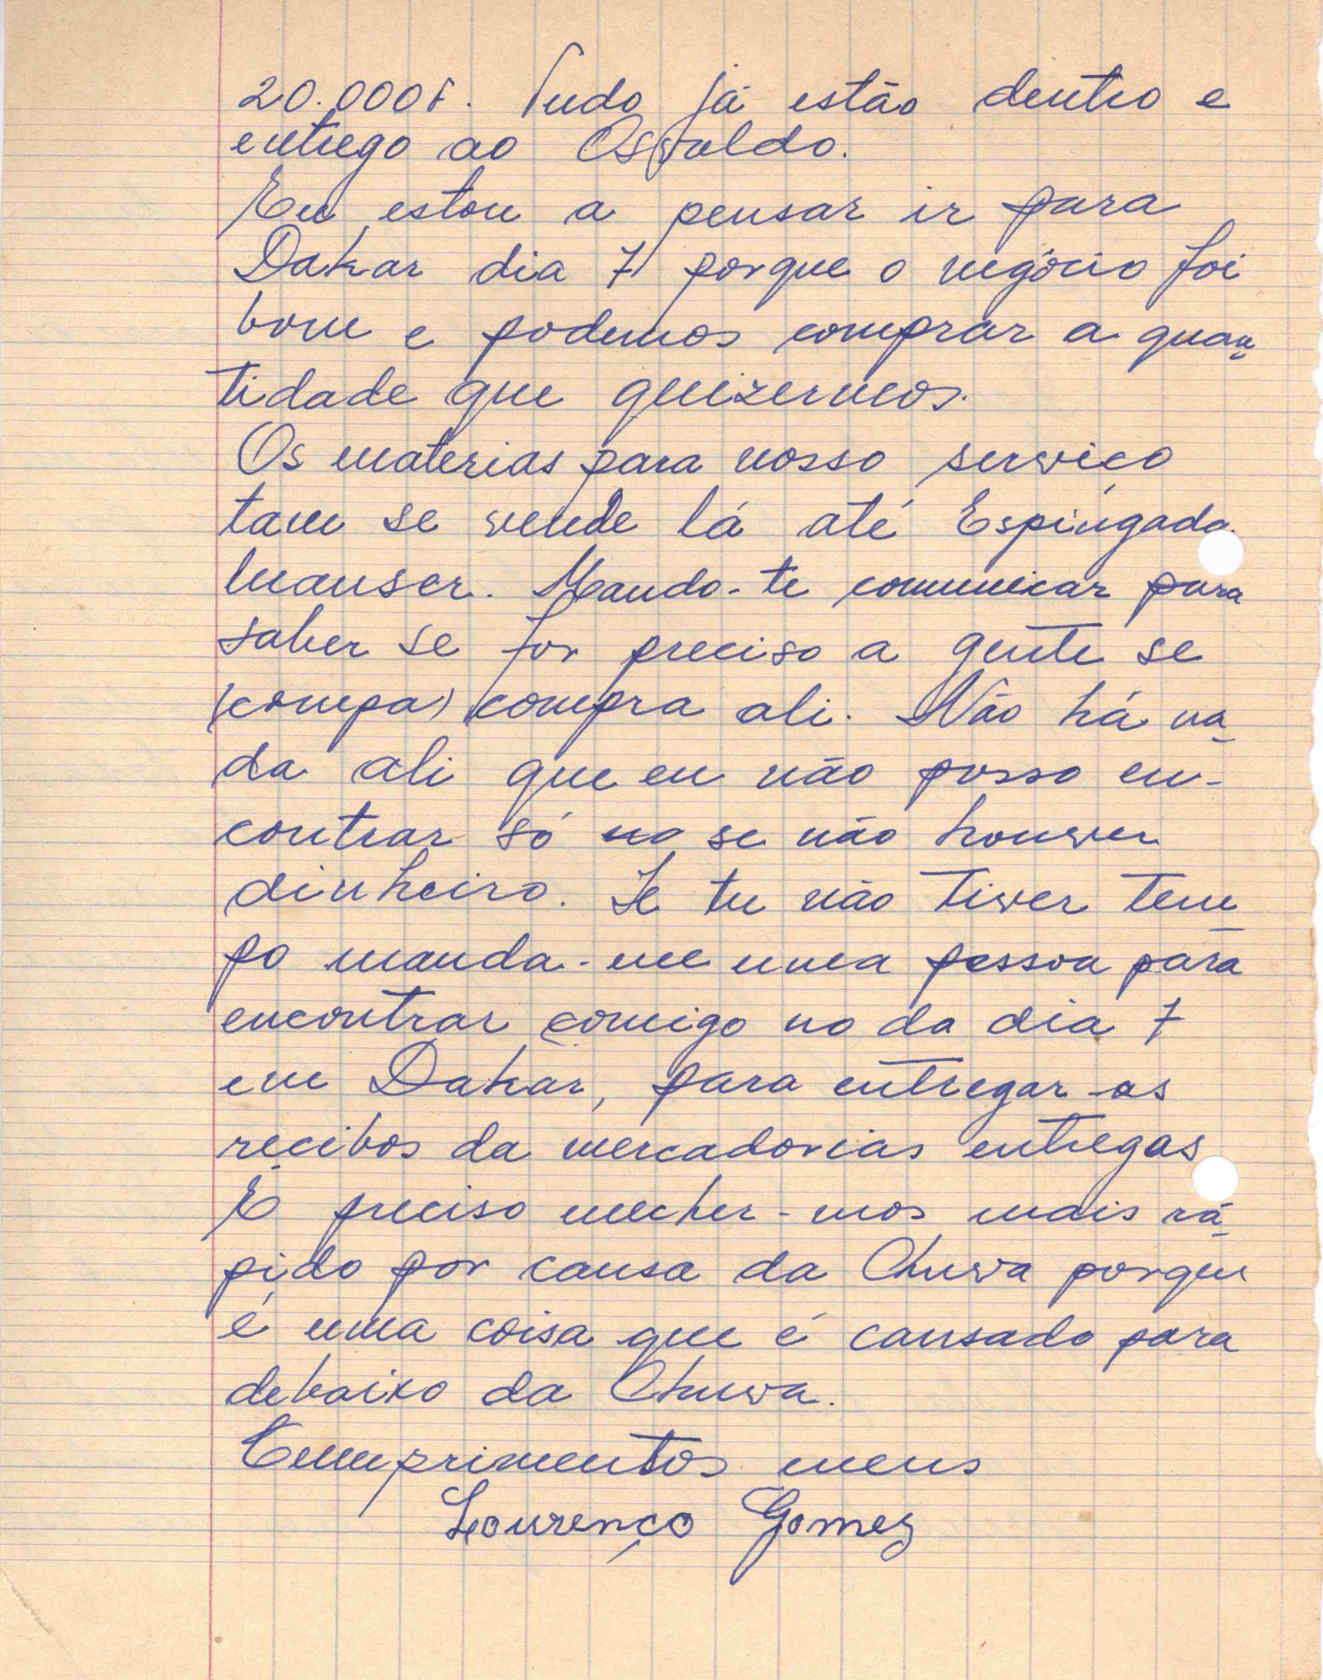 20.000F. Tudo já estão dentro e
entrego ao Osvaldo.
Eu estou a pensar ir para
Dakar dia 7 porque o negócio foi
bom e podemos comprar a quan-
tidade que quizermos.
Os materias para nosso serviço
tam se vende lá até Espingada
mauser. Mando-te comunicar para
saber se for preciso a gente se
(compa) compra ali. Não há na-
da ali que eu não posso en-
contrar só no se não houver
dinheiro. Se tu não tiver tem-
po manda-me uma pessoa para
encontrar comigo no da dia 7
em Dakar, para entregar as
recibos da mercadorias entregas
É preciso mecher-mos mais rá-
pido por causa da Chuva porque
é uma coisa que é cansado para
debaixo da Chuva.
Cumprimentos meus
Lourenço Gomes